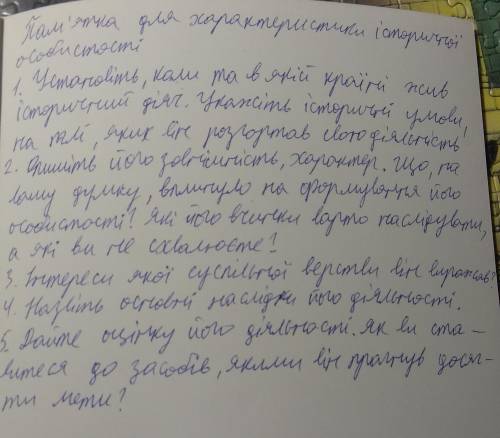 Пам'ятка для характеристики історичної
особистості
1. Установіть, коли та в якій країні жив
історичний діяч. Укажіть історичні умови,
на тлі, яких він розгортав свою діяльність
2. Опишіть його зовнішність, характер. Що, на
вашу думку, вплинуло на формування його
особистості? Які його вчинки варто наслідувати,
а які ви не схвалюєте?
3. Інтереси якої суспільної верстви він виражав?
4. Назвіть основні наслідки його діяльності.
5. Дайте оцінку його діяльності. Як ви ста-
витеся до засобів, якими він прагнув досяг-
ти мети?